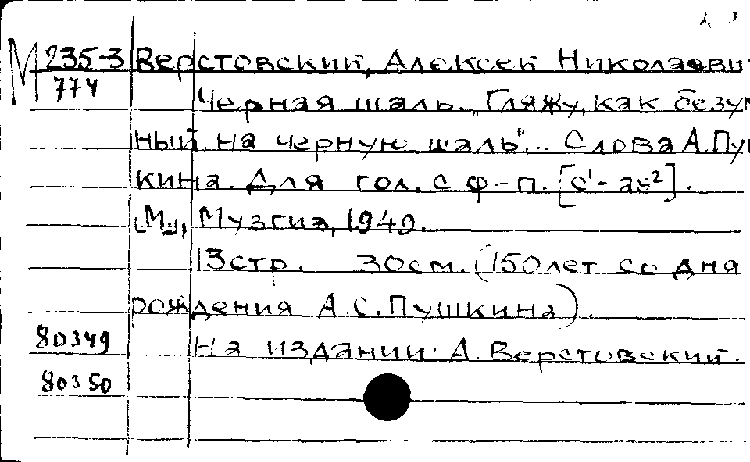 М 235-3 Верстовский, Алексей Николаеви
774 Черная шаль. "Гляжу, как безум
ный на черную шаль"... Слова А.Пу
кина. Для гол. с ф-п. [c¹-as²].
[М.], Музгиз, 1949.
13 стр. 30 см. (150 лет со дня
рождения А.С.Пушкина).
80349 На издании: А. Верстовский.
80350